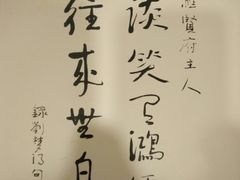 賢府主人
談笑有鴻
往來無白
錄劉夢得句